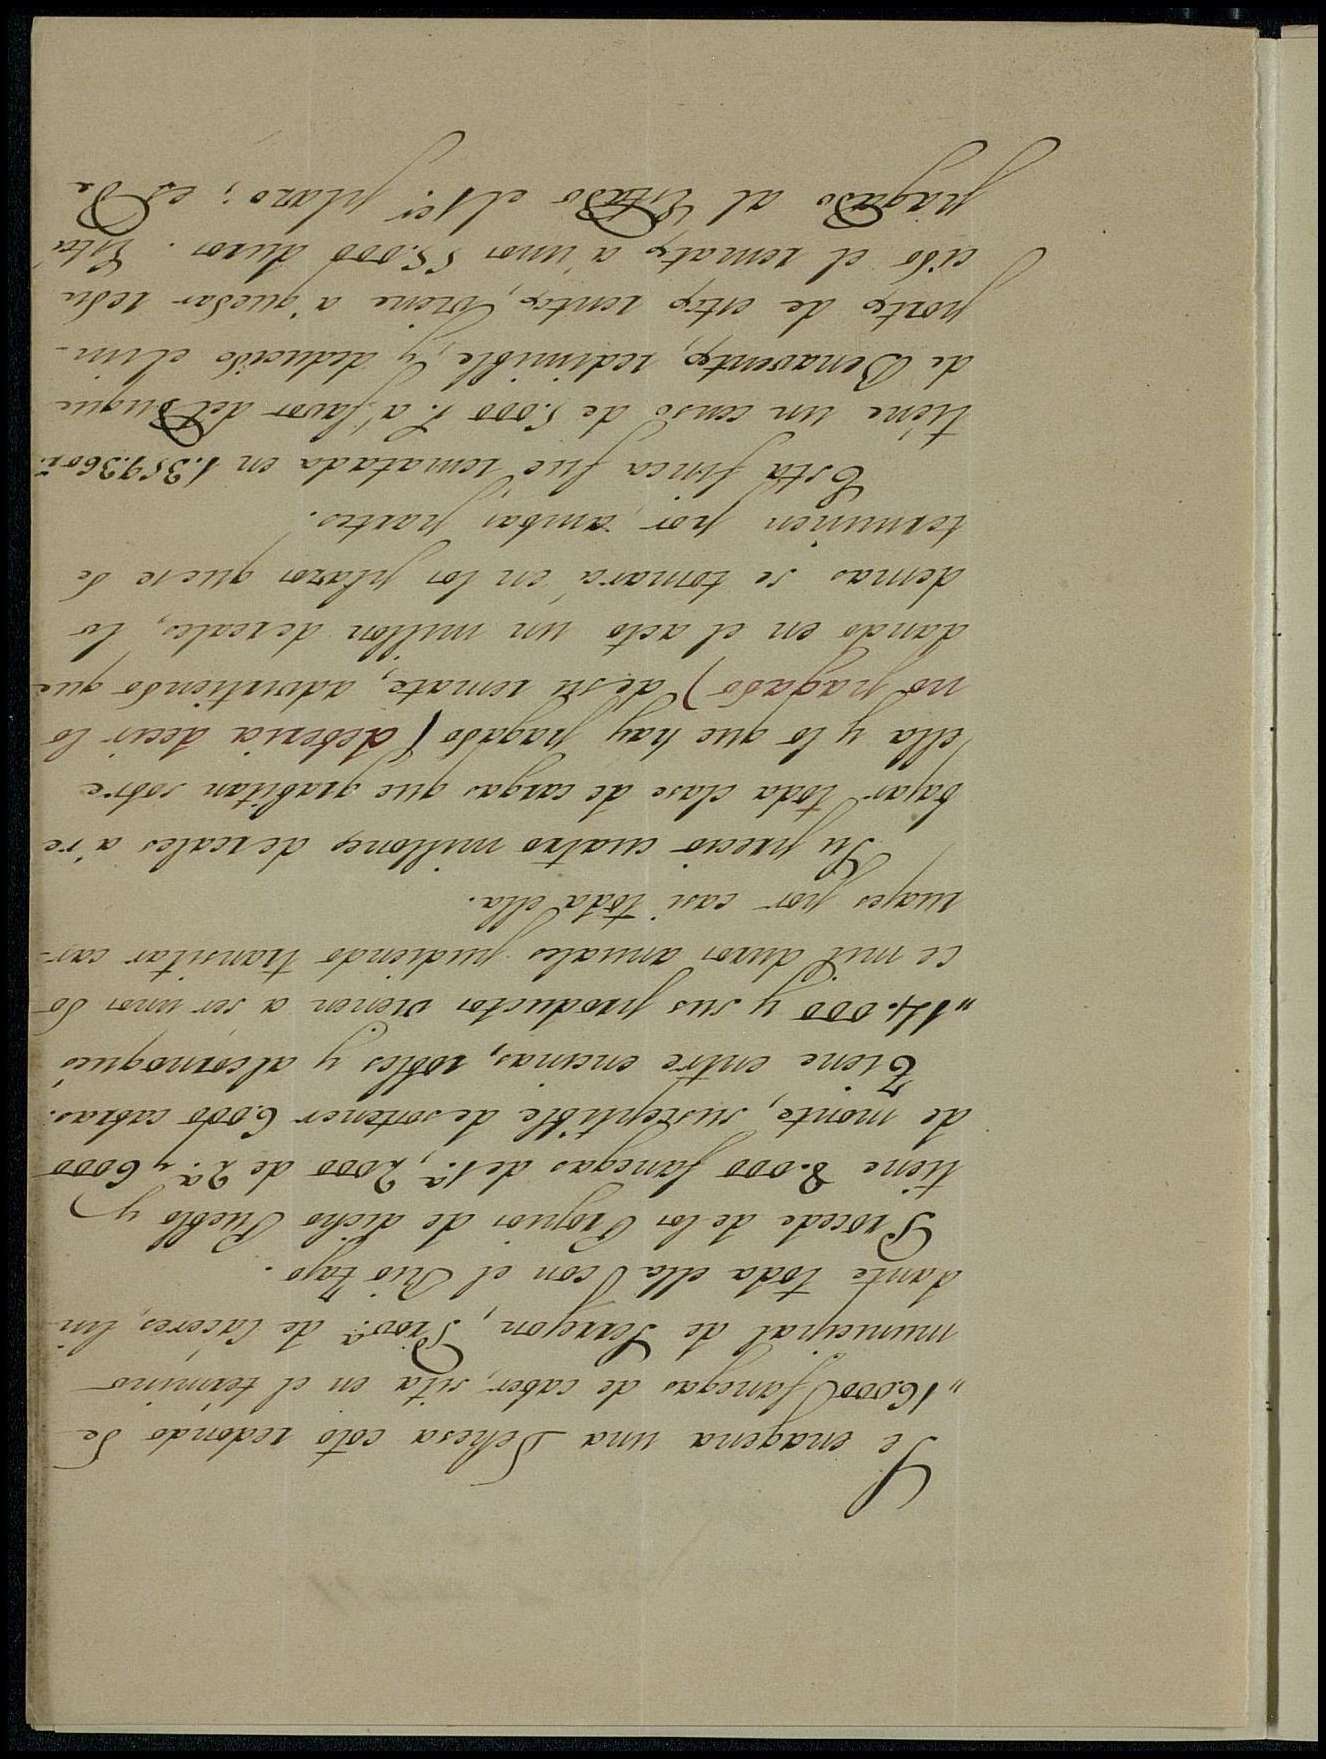 Se enagena una Dehesa coto redondo de
"16.000 fanegas de cabor, sita en el término
municipal de Serrejon, Prov.ª de Cáceres, lin-
dante toda ella con el Rio Tajo.
Procede de los Propios de dicho Pueblo y
tiene 8.000 fanegas de 1.ª, 2000 de 2.ª y 6000
de monte, susceptible de sostener 6.000 cabras.
Tiene entre encinas, robles y alcornoques
"14.000 y sus productos vienen a ser unos do
ce mil duros anuales pudiendo transitar car-
ruages por casi toda ella.
Su precio cuatro millones de reales a re
bajar toda clase de cargas que grabitan sobre
ella y lo que hay pagado (deberia decir lo
no pagado) de su remate, advirtiendo que
dando en el acto un millon de reales, lo
demas se tomará en los plazos que se de
terminen por ambas partes.
Esta finca fué rematada en 1.359.360 r.
tiene un censo de 5.000 r. a favor del Duque
de Benavente, redimible, y deducido el im-
porte de este renta, viene a quedar redu
cido el remate a unos 55.000 duros. Está
pagado al Estado el 1.er plazo; es de